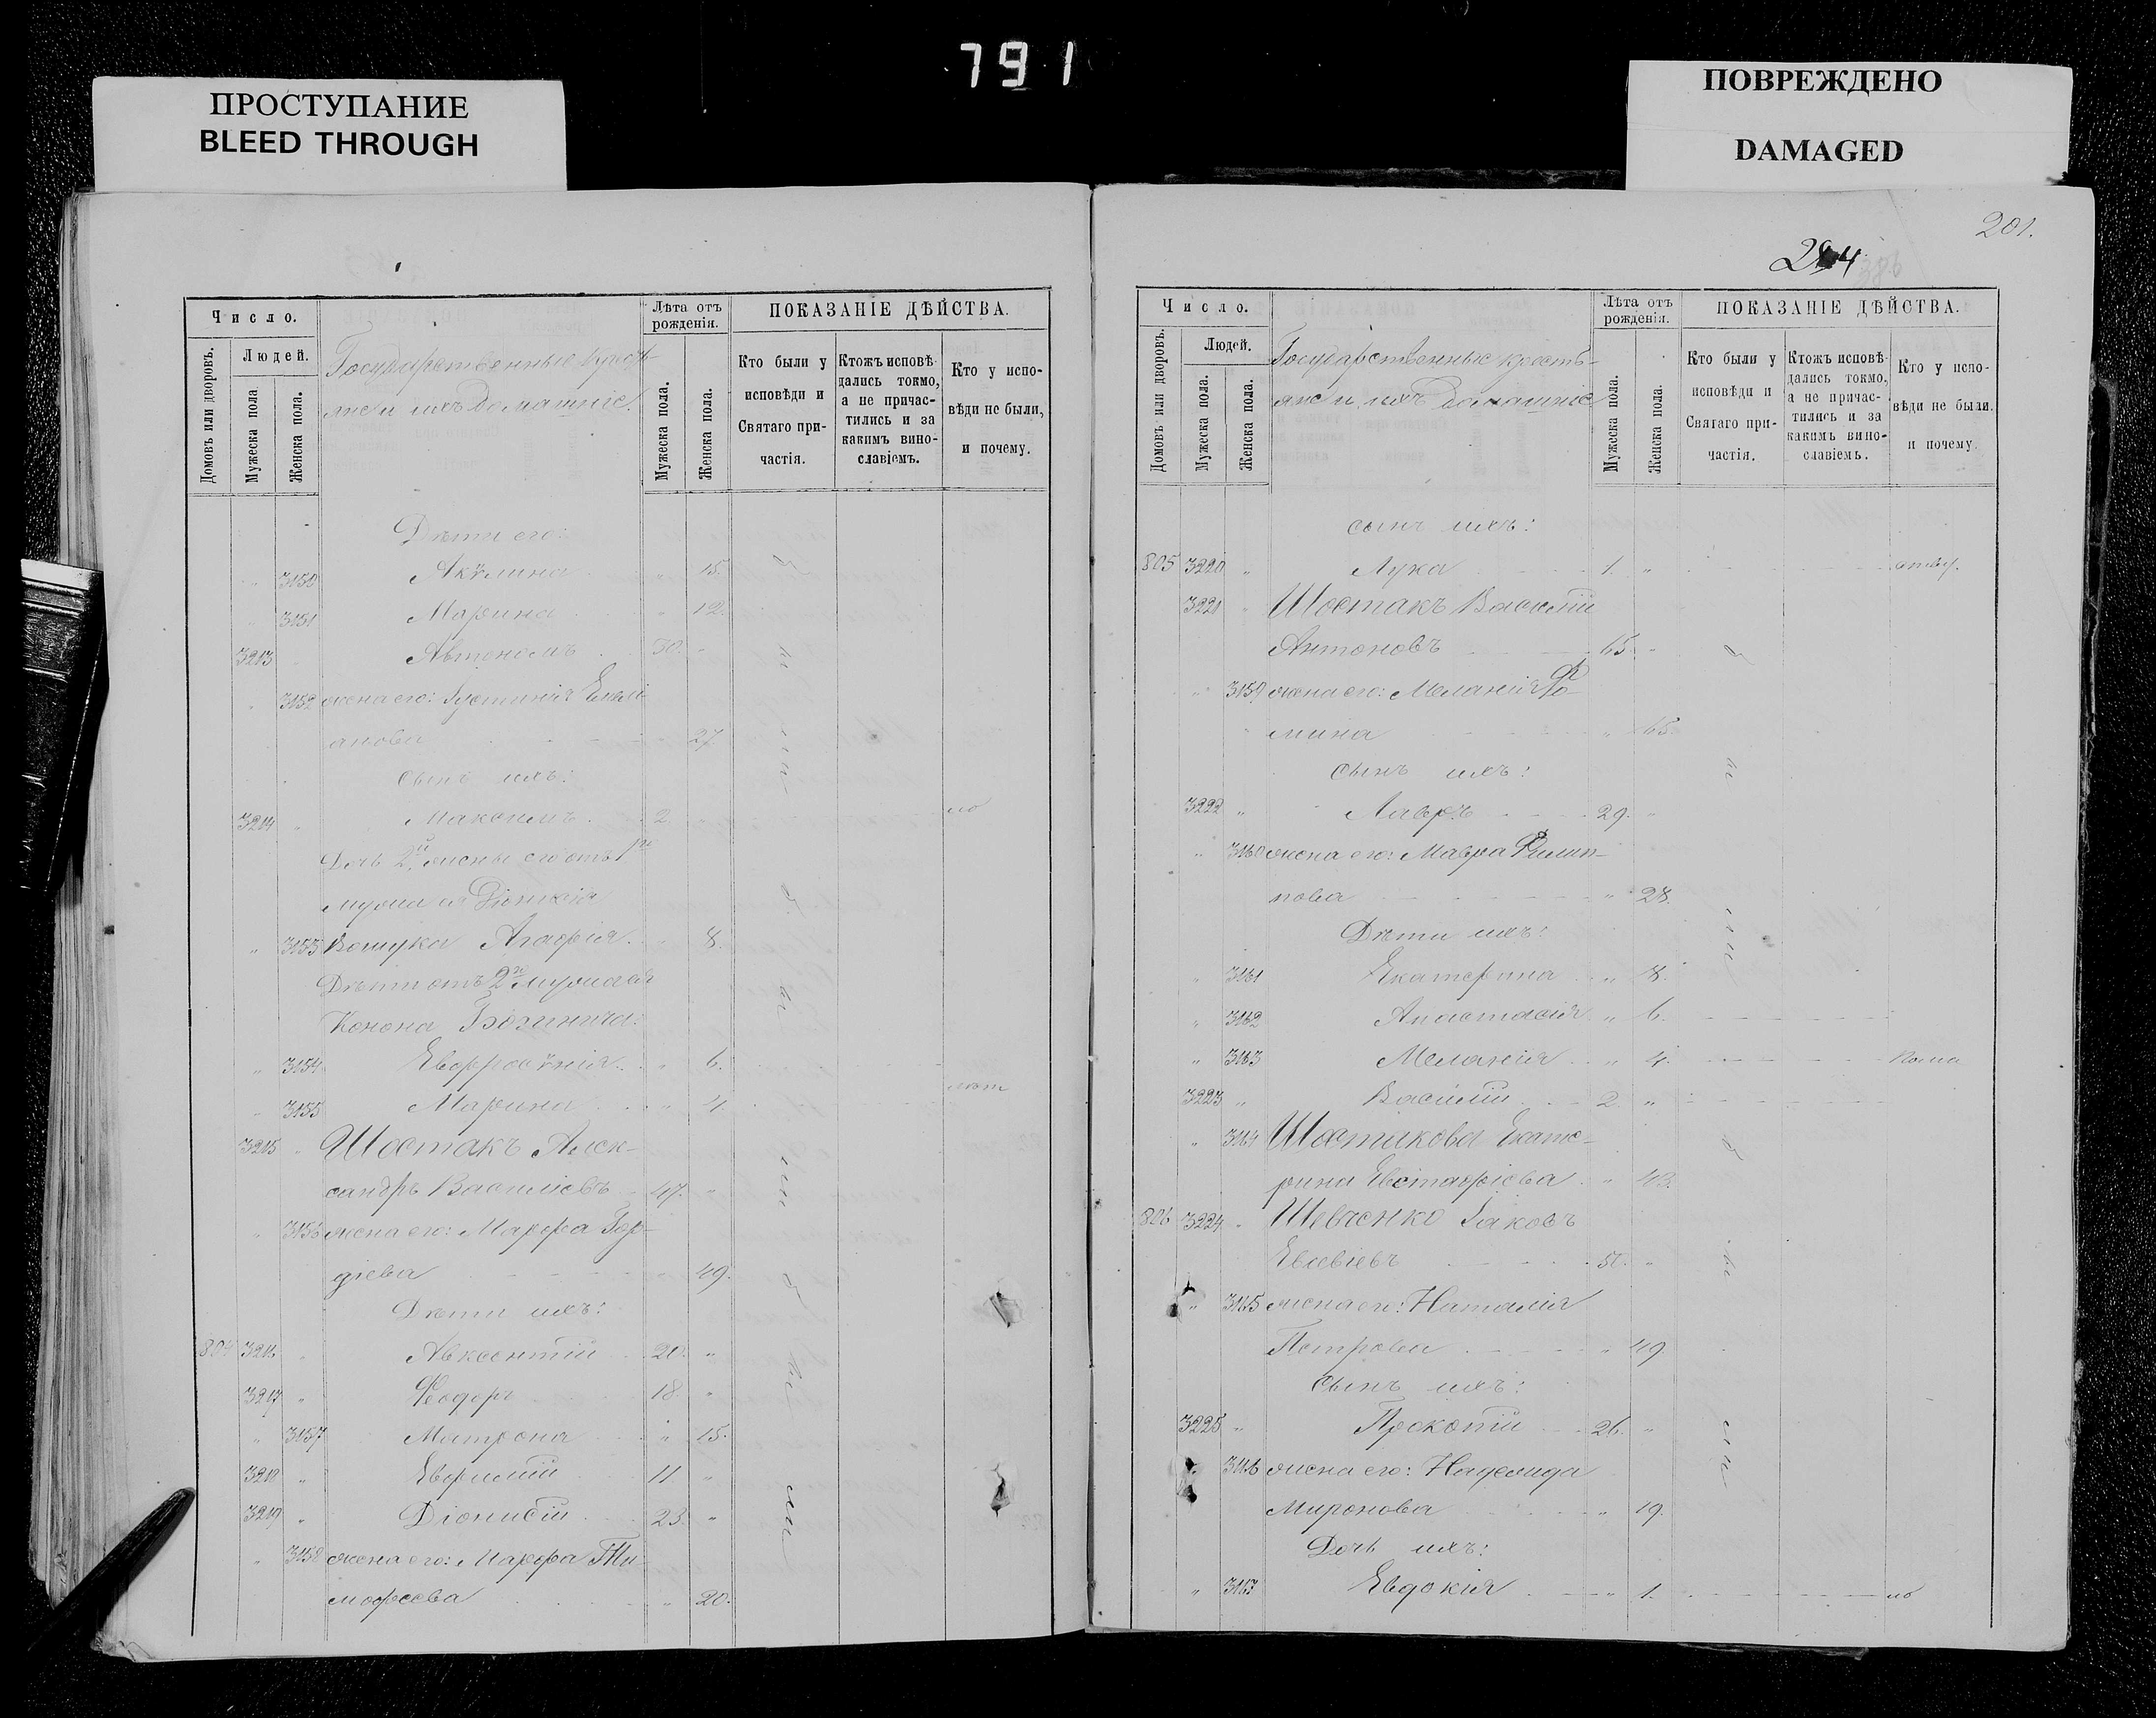 791
ПРОСТУПАНИЕ
BLEED THROUGH
ПОВРЕЖДЕНО
DAMAGED
Число.
Людей.
Домовъ или дворовъ.
Мужеска пола
Женска пола.
Государственные кресть-
яне и ихъ домашніе.
Лѣта отъ
рожденія.
Мужеска пола.
Женска пола.
ПОКАЗАНІЕ ДѢЙСТВА.
Кто были у
исповѣди и
Святаго при-
частія.
Ктожъ исповѣ-
дались токмо,
а не причас-
тились и за
какимъ вино-
славіемъ.
Кто у испо-
вѣди не были,
и почему.
Дѣти его:
" 3150 Акѵлина " 15.
" 3151 Марина " 12.
3213 " Автономъ 30. "
" 3152 жена его: Іустинія Емелі-
анова 27.
сынъ ихъ:
3214 " Максимъ 2. "
Дочь 2й жены его отъ 1го
мужа ея
" 3153 Агафія " 8.
Дѣти отъ 2го мужа ея
Конона
" 3154 Евфросѵнія " 6.
" 3155 Марина " 4.
3215 " Шостакъ Алек-
сандръ Василіевъ 47. "
" 3156 жена его: Марфа Гор-
діева 49.
Дѣти ихъ:
804 3216 " Авксентій 20. "
3217 " Ѳеодоръ 18. "
" 3157 Матрона " 15.
3218 " Евфимій 11. "
3219 " Діонисій 23. "
" 3158 жена его: Марфа Ти-
мофеева " 20.
201.
Число.
Людей.
Домовъ или дворовъ.
Мужеска пола.
Женска пола.
Государственные кресть-
яне и ихъ домашніе
Лѣта отъ
рожденія.
Мужеска пола.
Женска пола.
ПОКАЗАНІЕ ДѢЙСТВА.
Кто были у
исповѣди и
Святаго при-
частія.
Ктожъ исповѣ-
дались токмо,
а не причас-
тились и за
какимъ вино-
славіемъ.
Кто у испо-
вѣди не были.
и почему.
сынъ ихъ:
805 3220 " Лука 1. "
3221 " Шостакъ Василій
Антоновъ 65. "
" 3159 жена его: Меланія Ѳо-
мина " 65.
сынъ ихъ:
3222 " Лавръ 29. "
" 3160 жена его: Мавра Филип-
пова " 28.
Дѣти ихъ:
" 3161 Екатерина " 8.
" 3162 Анастасія " 6.
" 3163 Меланія " 4.
3223 " Василій 2. "
" 3164 Шостакова Екате-
рина Евстафіева " 43.
806 3224 " Шевченко Іаковъ
Евсевіевъ 50. "
" 3165 жена его: Наталія
Петрова " 49.
сынъ ихъ:
3225 " Прокопій 26. "
3166 жена его: Надежда
Миронова " 19.
Дочь ихъ:
" 3167 Евдокія " 1.